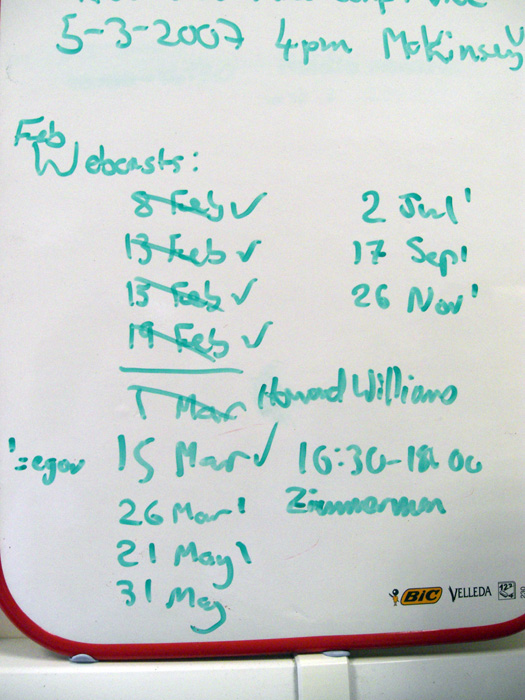 5-3-2007 4pm McKinsey
Feb
Webcasts:
8 Feb ✓ 2 Jul'
13 Feb ✓ 17 Sep'
15 Feb ✓ 26 Nov'
19 Feb ✓
1 Mar Howard Williams
'=egov 15 Mar ✓ 16:30-18.00
26 Mar' Zimmerman
21 May'
31 May
BIC VELLEDA